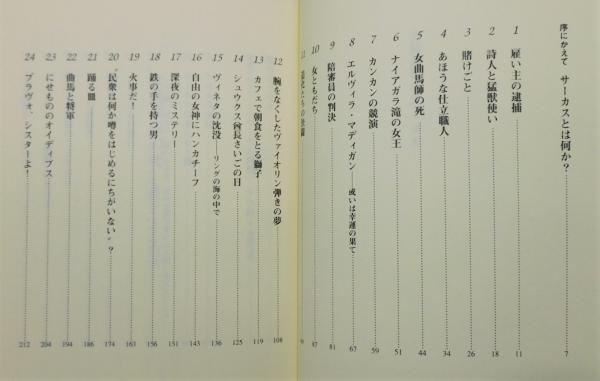 序にかえて サーカスとは何か？ 7
1 雇い主の逮捕 11
2 詩人と猛獣使い 18
3 賭けごと 26
4 あほうな仕立職人 34
5 女曲馬師の死 44
6 ナイアガラ滝の女王 51
7 カンカンの競演 59
8 エルヴィラ・マディガン――或いは幸運の果て 67
9 陪審員の判決 81
10 女ともだち 87
11
12 腕をなくしたヴァイオリン弾きの夢 108
13 カフェで朝食をとる獅子 119
14 シュウクス酋長さいごの日 125
15 ヴィネタの沈没――リングの海の中で 136
16 自由の女神にハンカチーフ 143
17 深夜のミステリー 151
18 鉄の手を持つ男 156
19 火事だ！ 163
20 “民衆は何か噂をはじめるにちがいない”？ 174
21 踊る皿 186
22 曲馬と将軍 194
23 にせもののオイディプス 204
24 ブラヴォ、シスターよ！ 212